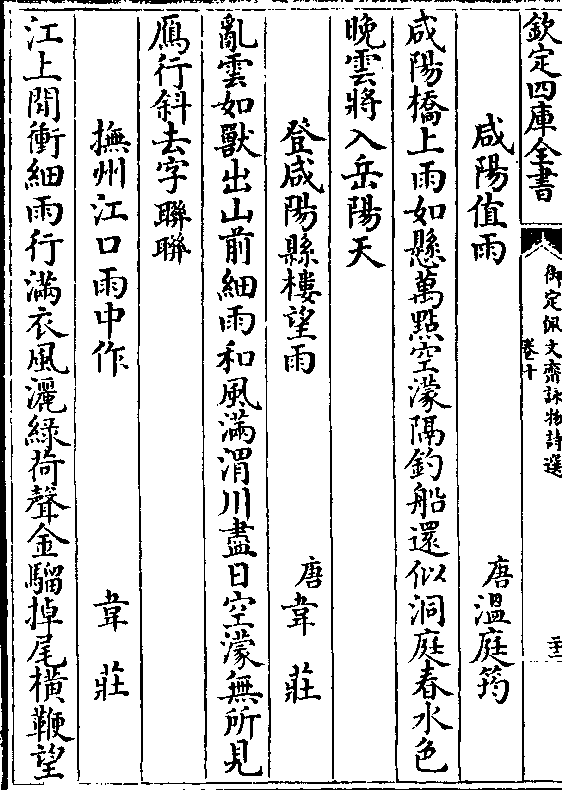 欽定四庫全書
御定佩文齋詠物詩選
卷十
咸陽值雨
唐溫庭筠
咸陽橋上雨如懸萬點空濛隔釣船還似洞庭春水色
晚雲將入岳陽天
登咸陽縣樓望雨
唐韋莊
亂雲如獸出山前細雨和風滿渭川盡日空濛無所見
鴈行斜去字聮聮
撫州江口雨中作
韋莊
江上閒衝細雨行滿衣風灑綠荷聲金騮掉尾橫鞭望